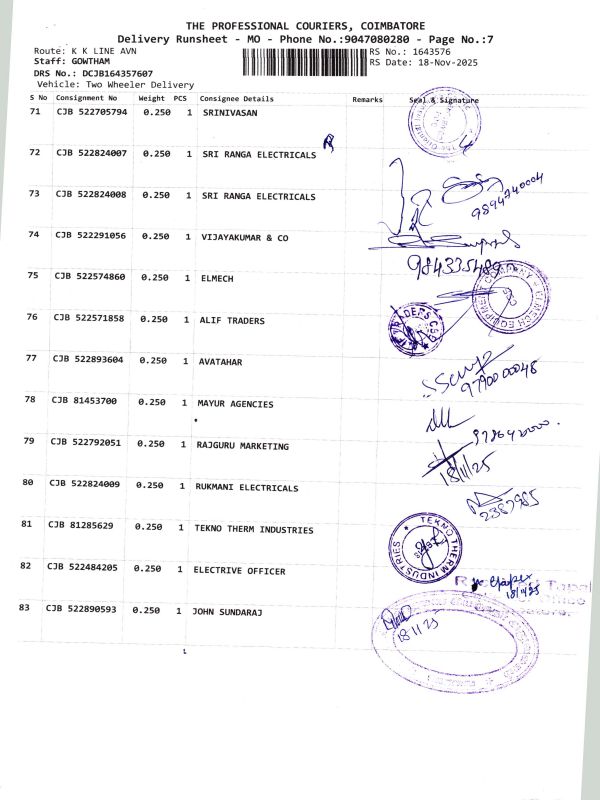 THE PROFESSIONAL COURIERS, COIMBATORE
Delivery Runsheet - MO - Phone No.:9047080280 - Page No.:7
Route: K K LINE AVN
RS No.: 1643576
Staff: GOWTHAM
RS Date: 18-Nov-2025
DRS No.: DCJB164357607
Vehicle: Two Wheeler Delivery
S No Consignment No Weight PCS Consignee Details Remarks Seal & Signature
71 CJB 522705794 0.250 1 SRINIVASAN
72 CJB 522824007 0.250 1 SRI RANGA ELECTRICALS
73 CJB 522824008 0.250 1 SRI RANGA ELECTRICALS
9894740004
74 CJB 522291056 0.250 1 VIJAYAKUMAR & CO
75 CJB 522574860 0.250 1 ELMECH
76 CJB 522571858 0.250 1 ALIF TRADERS
77 CJB 522893604 0.250 1 AVATAHAR
9790000048
78 CJB 81453700 0.250 1 MAYUR AGENCIES
79 CJB 522792051 0.250 1 RAJGURU MARKETING
18/11/25
80 CJB 522824009 0.250 1 RUKMANI ELECTRICALS
2387985
81 CJB 81285629 0.250 1 TEKNO THERM INDUSTRIES
TEKNO THERM INDUSTRIES
82 CJB 522484205 0.250 1 ELECTRIVE OFFICER
18/11/25
83 CJB 522890593 0.250 1 JOHN SUNDARAJ
18 11 25